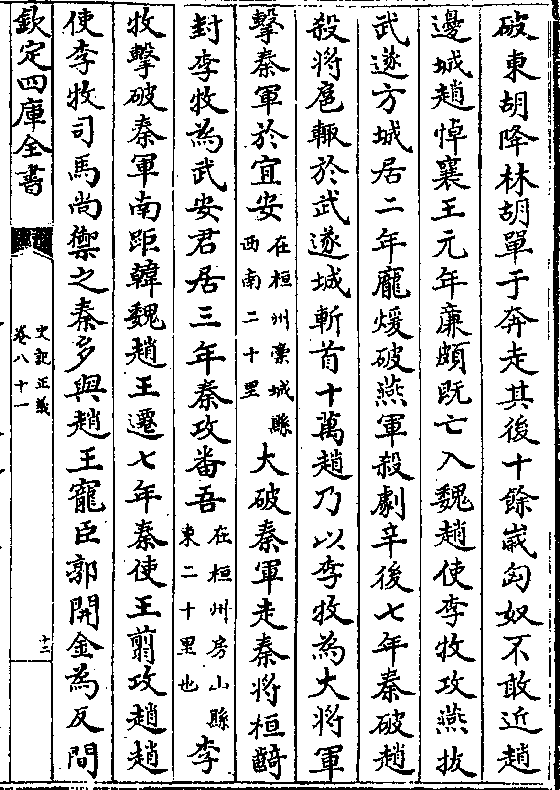 破東胡降林胡單于奔走其後十餘嵗匈奴不敢近趙
邊城趙悼襄王元年亷頗既亡入魏趙使李牧攻燕拔
武遂方城居二年龐煖破燕軍殺劇辛後七年秦破趙
殺將扈輙於武遂城斬首十萬趙乃以李牧為大將軍
擊秦軍於宜安在桓州槀城縣西南二十里大破秦軍走秦將桓齮
封李牧為武安君居三年秦攻番吾在桓州房山縣東二十里也李
牧擊破秦軍南距韓魏趙王遷七年秦使王翦攻趙趙
使李牧司馬尚禦之秦多與趙王寵臣郭開金為反間
欽定四庫全書
史記正義
卷八十一
十二